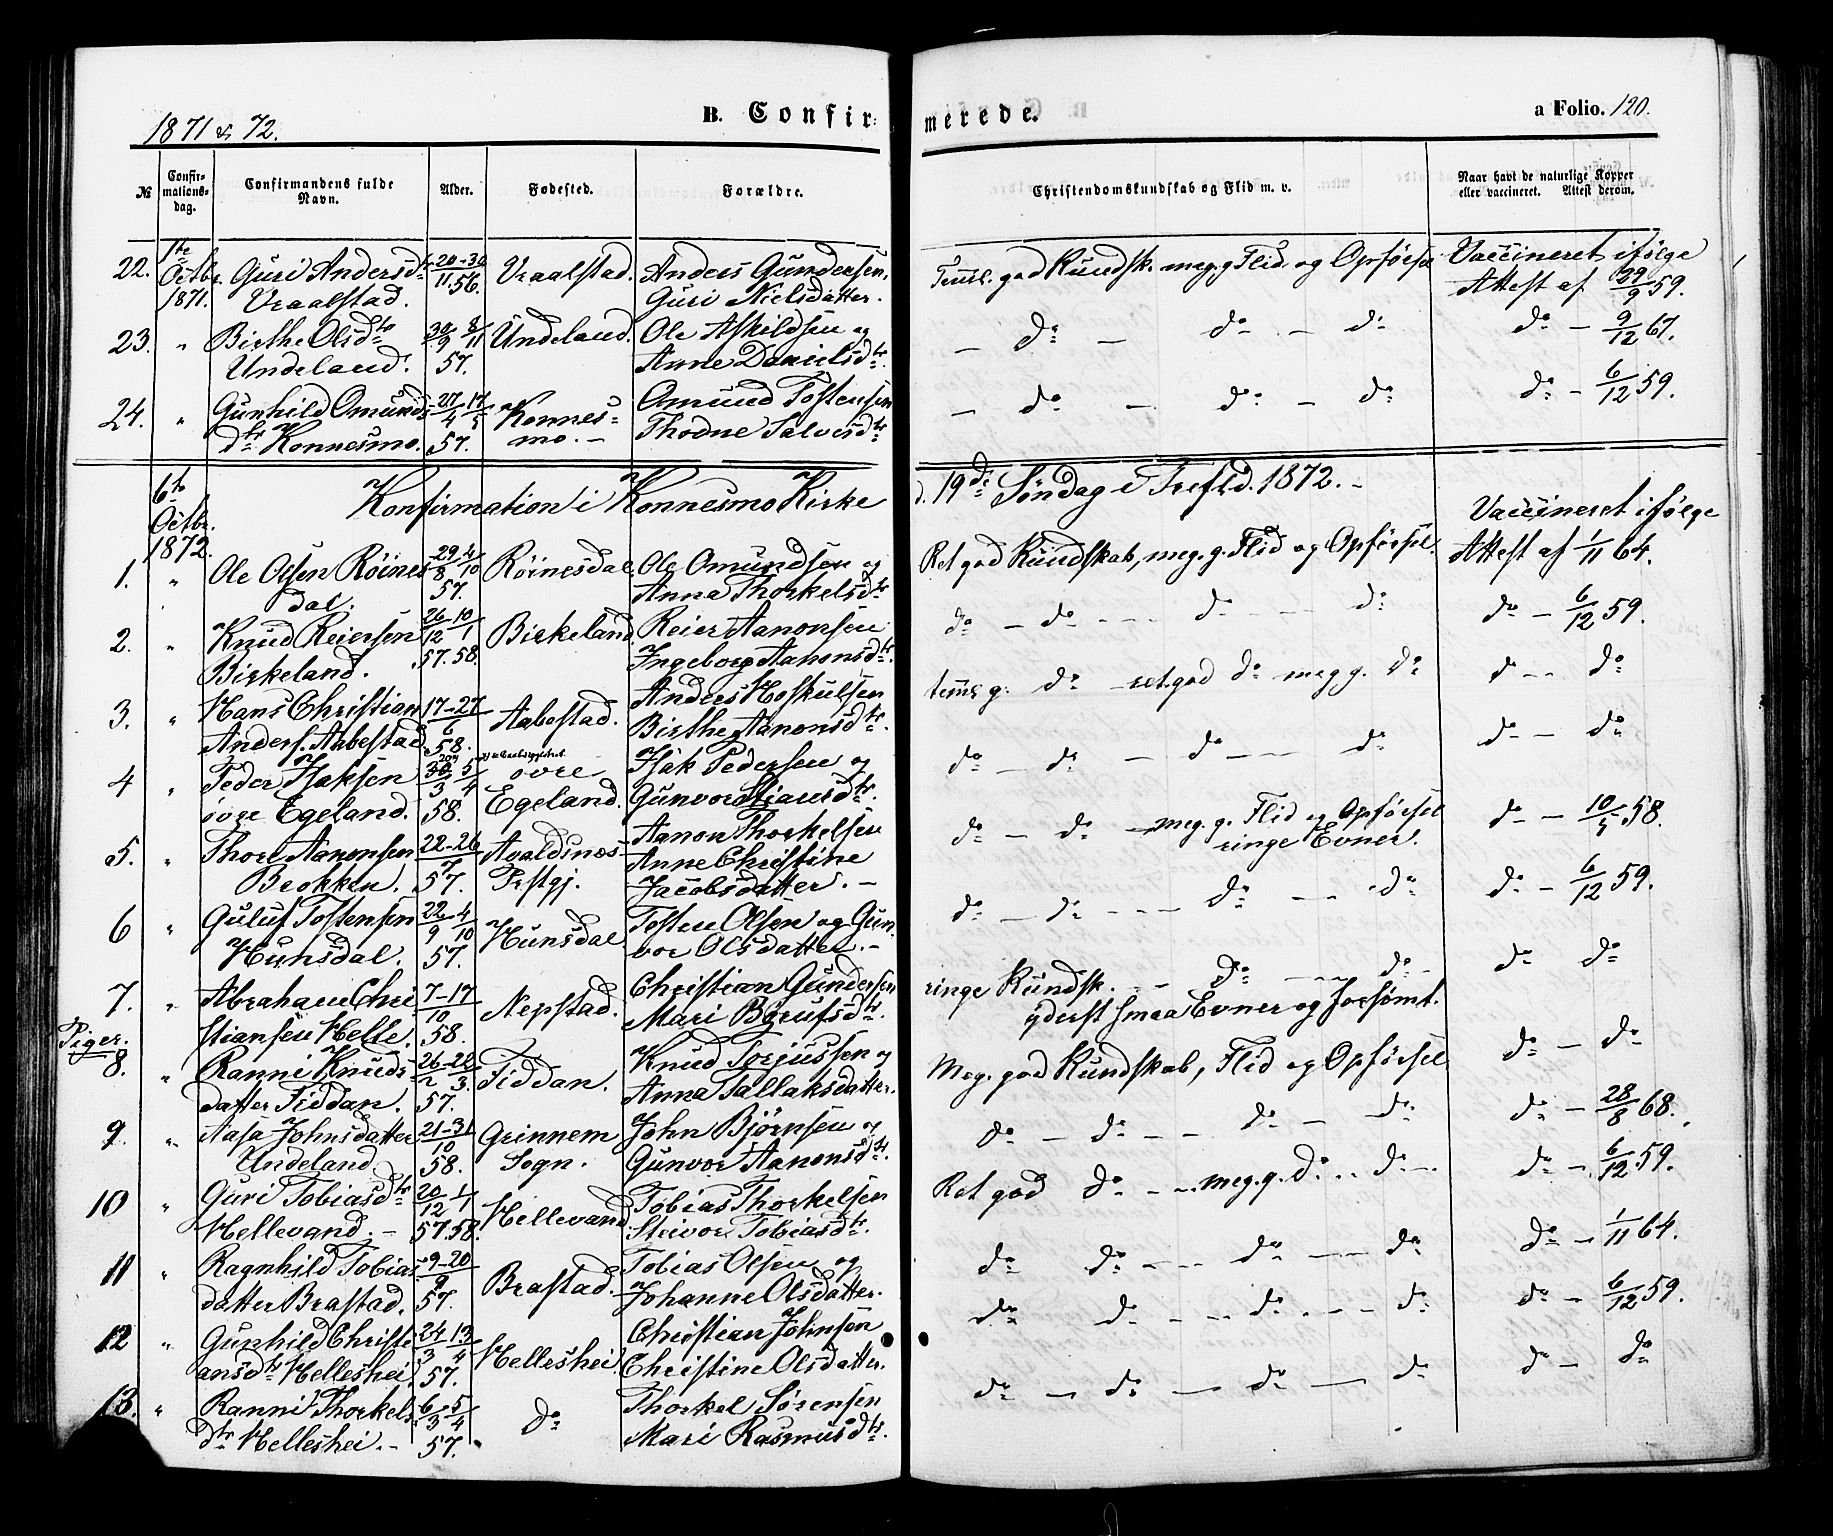 1871 & 72.
B. Confir-
merede.
a Folio. 120.
№
Confir-
mations-
dag.
Confirmandens fulde
Navn.
Alder.
Fødested.
Forældre.
Christendomskundskab og Flid m. v.
Naar havt de naturlige Kopper
eller vaccineret. Attest derom.
22. 1te Octbr. 1871. Guri Andersdtr Vraalstad. 20-30/11.56. Vraalstad. Anders Gundersen, Guri Nielsdatter. god Kundsk. meg. g Flid og Opførsel Vaccineret ifølge Attest af 29/9 59.
23. " Birthe Olsdtr Undeland. 30/9 8/11 57. Undeland. Ole Askildsen og Anne Danielsdtr. – do – do – do do – 9/12 67.
24. " Gunhild Omunds dtr Konnesmo. 27/4 17/5 57. Konnes- mo. – Omund Tostensen Thodne Salvesdtr – do – do – do do – 6/12 59.
6te Octbr. 1872. Konfirmation i Konnesmo Kirke d. 19de Søndag e Trefld. 1872. –
1. " Ole Olsen Röines dal. 29/8 4/10 57. Röinesdal. Ole Omundsen og Anna Thorkelsdtr Ret god Kundskab, meg. g. Flid og Opförsel. Vaccineret ifølge Attest af 1/11 64.
2. " Knud Reiersen Birkeland. 26/12 10/1 57.58. Birkeland. Reier Aanonsen Ingeborg Aanonsdtr. do – do – – – do – – do do – 6/12 59.
3. " Hans Christian Anders. Aabestad 17-27/6 58. Aabestad. Anders Hoskulsen Birthe Aanonsdtr. tems g. do – ret. god do meg g. do do – – do
4 " Peder Isaksen övre Egeland. 5/4 58. övre Egeland. Isak Pedersen og Gunvor Stiansdtr. do – do – do – – do do – do
5. " Thore Aanonsen Brokken. 22-26/7 57. Avaldsnes Prstgj. Aanon Thorkelsen Anne Christine Jacobsdatter. – do – do – meg. g. Flid og Opförsel ringe Evner. do – 10/5 58.
6 " Guluf Tostensen Hunsdal. 22/9 4/10 57. Hunsdal Tosten Olsen og Gun- vor Olsdatter. – do – do – – – do – – do do – 6/12 59.
7. " Abraham Chri stiansen Helle. 7-17/10 58. Nepstad. Christian Gundersen Mari Bgrufsdtr. ringe Kundsk. – – do – – do – yderst smaa Evner og Forsömt. do do
Piger.
8. " Ranni Knuds datter Fiddan. 26-22 3. 57. Fiddan. Knud Torjussen og Anna Tallaksdatter. Meg. god Kundskab, Flid og Opförsel do – do
9. " Aasa Johnsdatter Undeland 21-31/10 58. Grinnem Sogn. John Björnsen og Gunvor Aanonsdtr. do – do – – do – do do – 28/8 68.
10 " Guri Tobiasdtr Hellevand. – 20/12 1/1 57.58. Hellevand. Tobias Thorkelsen Steivor Tobiasdtr. Ret god do – – meg. g. do – – do – do – 6/12 59.
11 " Ragnhild Tobias datter Brastad. 9-20/9 57. Brastad. Tobias Olsen og Johanne Olsdatter. do do – – do – – do do – 1/11 64.
12 " Gunhild Christi ansdtr Helleshei. 24/3 13/4 57. Helleshei. Christian Johnsen Christine Olsdatter. do do – – do – – do do – 6/12 59.
13. " Ranni Thorkels dtr Helleshei. – 6/3 5/4 57. do Thorkel Sörensen Mari Rasmusdtr. do – do – do – do do – do